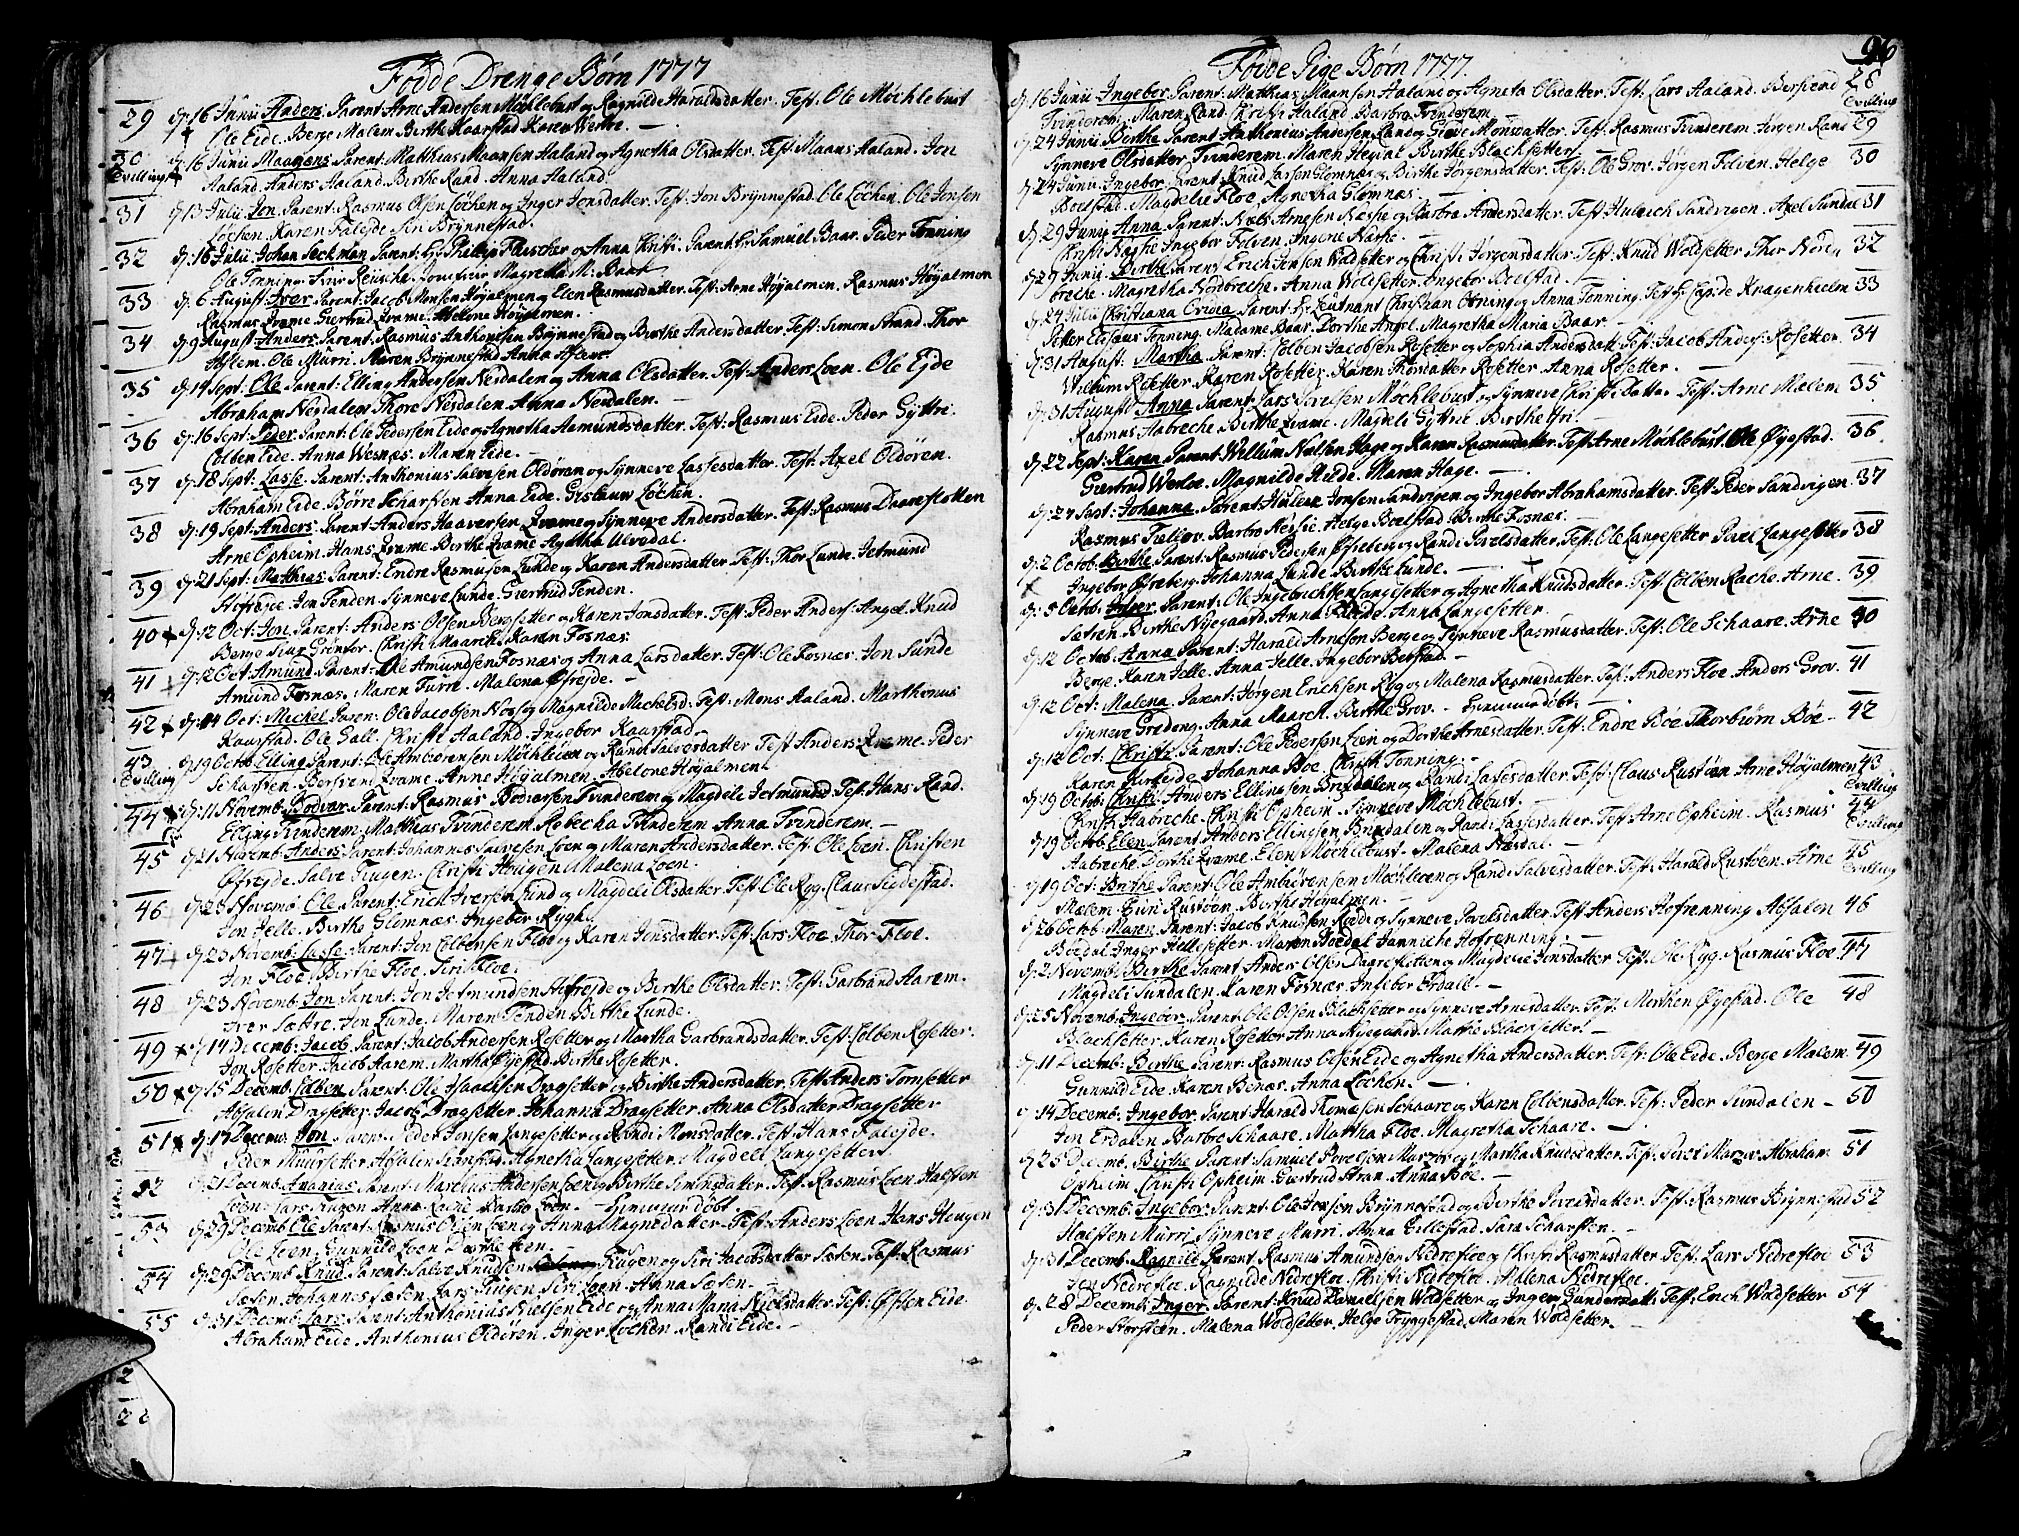 Fødde Drenge Børn 1777
29 d. 16 Junii Anders. Parent: Arne Andersen Møchlebust og Ragnilde Haraldsdatter. Test: Ole Møchlebust
Ole Eide. Berge Malem Birthe Kaarstad. Karen
30 d. 16 Junii Maanens. Parent: Matthias Maansen Aaland og Agnetha Olsdatter. Test: Maans Aaland. Jon
Tvilling Aaland. Anders Aaland. Birthe Rand. Anna Aaland
31 d. 13 Julii Jon. Parent: Rasmus Olsen Løchen og Inger Jonsdatter. Test: Jon Brynnestad. Ole Løchen. Ole Jonsen
Løchen. Karen Falejde. Siri Brynnestad.
32 d. 16 Julii Johan Parent: Hr Philip Fleischer og Anna Christi. Parent Hr Samuel Baar. Peder Tonning
Ole Tonning. Magretha M: Baar
33 d. 6 August: Iver. Parent: Jacob Monsen Høyalmen og Elen Rasmusdatter. Test: Arne Høyalmen. Rasmus Høyalmen
Rasmus Qvame. Giertrud Qvame. Abelone Høyalmen.
34 d. 9 August: Anders. Parent: Rasmus Anthonisen Brynnestad og Birthe Andersdatter. Test: Simon Strand. Thor
Aflem. Ole Murri. Karen Brynnestad Anna Aflem
35 d. 14 Sept: Ole. Parent: Elling Andersen Nesdalen og Anna Olsdatter. Test: Anders Loen. Ole Eide
Abraham Nesdalen Thore Nesdalen. Anna Nesdalen.
36 d. 16 Sept: Peder. Parent: Ole Pedersen Eide og Agnetha Aamundsdatter. Test: Rasmus Eide. Peder Gyttre.
Colben Eide. Anna Wesnæs. Maren Eide.
37 d. 18 Sept: Lasse. Parent: Anthonius Salvesen Oldøren og Synneve Lassesdatter. Test: Axel Oldøren.
Abraham Eide. Børre Scharsten Anna Eide. Løchen.
38 d. 19 Sept: Anders. Parent: Anders Haaversen Qvame og Synneve Andersdatter. Test: Rasmus Daareflotten
Arne Opheim. Hans Qvame. Berthe Qvame Agatha Ulvedal.
39 d. 21 Sept: Matthias. Parent: Endre Rasmusen Lunde og Karen Andersdatter. Test: Thor Lunde. Jetmund
Hefrejde. Jon Tenden. Synneve Lunde. Giertrud Tenden.
40 d. 12 Oct: Jon. Parent: Anders Olsen Bergsetter og Karen Jonsdatter. Test: Peder Anders: Angel. Knud
Berge Siur Christi Maarch. Karen Fosnæs
41 d. 12 Oct: Amund. Parent: Ole Amundsen Fosnæs og Anna Larsdatter. Test: Ole Fosnæs. Jon Sunde
Amund Fosnæs. Maren Furre. Malena Øfrejde.
42 d. 14 Oct: Michel. Parent: Ole Jacobsen og Magnilde Michelsd: Test: Mons Aaland. Marthonus
Kaarstad. Ole Gall. Christi Aaland. Ingebor Kaarstad
43 d. 19 Octob. Elling. Parent: Ole Ambiørensen Møchleøen og Randi Salvesdatter Test: Anders Qvame. Peder
Tvilling Scharsten. Berfvend Qvame. Anne Høyalmen. Abelone Høyalmen
44 d. 11 Novemb. Bodvar. Parent: Rasmus Bodvarsen Tvinderem og Magdeli Jetmundsd. Test: Hans Rand.
Elling Tvinderem. Matthias Tvinderem Rebecha Tvinderem Anna Tvinderem.
45 d. 21 Novemb: Anders. Parent: Johannes Salvesen Loen og Maren Andersdatter. Test: Ole Loen. Christen
Øfrejde. Salve Tiugen. Christi Hougen. Malena Loen.
46 d. 23 Novemb: Ole. Parent: Erich Iversen Lund og Magdeli Olsdatter. Test: Ole Ryg. Claus Sigdestad.
Jon Jelle. Birthe Glomnæs. Ingebor Rygh.
47 d. 23 Novemb: Lasse. Parent: Jon Colbensen Floe og Karen Jonsdatter. Test: Lars Floe. Thor Floe.
Jon Floe. Birthe Floe. Siri Floe.
48 d. 23 Novemb. Jon. Parent: Jon Jetmundsen Hefrejde og Birthe Olsdatter. Test: Garbrand Aarem.
Iver Sættre. Jon Lunde. Maren Tenden Birthe Lunde.
49 d. 14 Decemb: Jacob. Parent: Jacob Andersen Rosetter og Martha Garbrandsdatter. Test: Colben Rosetter.
Jon Rosetter. Jacob Aarem. Martha Øyestad. Birthe Rosetter.
50 d. 15 Decemb: Colben. Parent: Ole Isaachsen Dragsetter og Birthe Andersdatter. Test: Anders Tomsetter
Absalon Dragsetter Jacob Dragsetter. Johanna Dragsetter. Anna Olsdatter Dragsetter
51 d. 17 Decemb. Jon. Parent: Peder Jonsen Langesetter og Randi Monsdatter. Test: Hans Falejde.
Peder Muursetter. Absalon Agnetha Langesetter. Magdeli Langesetter
52 d. 21 Decemb. Ananias. Parent: Marthinus Andersen Loen og Birthe Simensdatter. Test: Rasmus Loen Halsten
Loen. Lars Tiugen Anna Barbo Loen. Hiemme døbt.
53 d. 29 Decemb Ole. Parent: Rasmus Olsen Loen og Anna Magnedatter. Test: Anders Loen Hans Hougen
Ole Loen. Gunnild Loen Dorthe Loen.
54 d. 29 Decemb. Knud. Parent: Salve Knudsen Tiugen og Siri Jacobsdatter Sæten. Test: Rasmus
Sæten. Johannes Sæten. Lars Tiugen. Siri Loen. Anna Sæten.
55 d. 31 Decemb Lars. Parent: Anthonias Nielsen Eide og Anna Maria Nielsdatter. Test: Østen Eide
Abraham Eide. Anthonius Oldøren. Inger Løchen. Randi Eide.
96
Fødde Pige Børn 1777.
d. 16 Junii Ingebor. Parent: Matthias Maansen Aaland og Agneta Olsdatter. Test: Lars Aaland. Berfvend 28
Tvinderem. Maren Rand. Christi Aaland. Barbra Tvinderem Tvilling
d. 24 Junii Berthe. Parent Anthonius Andersen Rand og Giøve Monsdatter. Test: Rasmus Tvinderem. Jørgen Rand 29
Synneve Olsdatter Tvinderem. Maren Birthe Blachsetter.
d. 24 Junii. Ingebor. Parent: Knud Larsen Glomnæs og Birthe Jørgensdatter. Test: Ole Grov. Jørgen Folven. Helge 30
Bøelstad. Magdelie Floe. Agnetha Glomnæs.
d. 29 Junij Anna. Parent: Niels Arnesen Nesje og Barbra Andersdatter. Test: Hulbrich Sandvigen. Axel Sundal 31
Christi Ingebor Folven. Ingerie
d. 29 Junij. Birthe. Parent Erich Jensen Woldsetter og Christi Jørgensdatter. Test: Knud Woldsetter. Thor Nord 32
breche. Magretha Nordbreche. Anna Woldsetter. Ingebor Bøelstad.
d. 24 Julii Christiana Parent. Hr Leutnant Christian Otning og Anna Tonning. Test: Hr Capt: de Kragenhielm 33
Peter Elisæus Tonning. Madame Baar. Dorthe Angel. Magretha Maria Baar.
d. 31 August: Martha. Parent: Colben Jacobsen Rosetter og Sophia Andersdatt. Test: Jacob Anders: Rosetter 34
Willum Rosetter. Karen Rosetter. Karen Thorsdatter Rosetter. Anna Rosetter.
d. 31 August: Anna. Parent: Lars Møchlebust og Synneve Christi datter. Test: Arne Malem 35
Rasmus Aabreche. Birthe Qvame. Magdeli Gyttrie. Birthe Yri.
d. 22 Sept: Karen. Parent: Willum Nielsen Hage og Karen Rasmusdatter. Test: Arne Møchlebust. Ole Øyestad. 36
Giertrud Werloe. Magnilde Hilde. Maren Hage.
d. 27 Sept: Johanna. Parent: Jonsen Sandvigen og Ingebor Abrahamsdatter. Test: Peder Sandvigen. 37
Rasmus Tiellov. Barbo Nessie. Helge Bøelstad. Birthe Fosnæs.
d. 2 Octob. Birthe. Parent: Rasmus Pedersen Øfreberg og Randi Povelsdatter. Test: Ole Langesetter Povel Langesetter 38
Ingebor Øfreberg. Johanna Lunde. Birthe Lunde.
d. 5 Octob. Inger. Parent: Ole Ingebrichtsen Langesetter og Agnetha Knudsdatter. Test: Colben Rache. Arne. 39
Sætren Birthe Nyegaard. Anna Anna Langesetter.
d. 12 Octob. Anna. Parent: Harald Arnesen Berge og Synneve Rasmusdatter. Test: Ole Schaare. Arne 40
Berge. Karen Jelle. Anna Jelle. Ingebor Berstad.
d. 12 Oct: Malena. Parent: Jørgen Erichsen Ryg og Malena Rasmusdatter. Test: Anders Floe. Anders Grov. 41
Synneve Grodeng. Anna Maarch. Birthe Grov. Hiemme døbt.
d. 12 Oct: Christi. Parent: Ole Pedersen og Dorthe Arnesdatter. Test: Endre Bøe. Thorbiørn Bøe 42
Karen Johanna Bøe Christi Tonning.
d. 19 Octob: Christi: Anders Ellingsen Brixdalen og Randi Lassesdatter. Test: Claus Rustøen Arne Høyalmen 43
Christi Aabreche. Christi Opheim. Synneve Møchlebust. Tvilling
d. 19 Octob Elen. Parent Anders Ellingsen Brixdalen og Randi Lassesdatter. Test: Arne Opheim. Rasmus 44
Aabreche Dorthe Qvame. Elen Møchlebust. Malena Næsdal. Tvilling
d. 19 Oct: Birthe. Parent: Ole Ambiørensen Møchleøen og Randi Salvesdatter. Test: Harald Rustøen. Arne 45
Malem. Rustøen. Birthe Høyalmen. Tvilling
d. 26 Octob. Maren. Parent: Jacob Knudsen og Synneve Povelsdatter. Test: Anders Hofrenning Absalon 46
Bøedal. Inger Hellesetter. Maren Bøedal Janniche Hofrenning.
d. 2 Novemb: Birthe. Parent: Anders Olsen Daareflotten og Magdelie Jonsdatter Test: Ole Ryg. Rasmus Floe. 47
Magdeli Sundalen. Karen Fosnæs. Ingebor Erdal.
d. 25 Novemb. Ingebor. Parent: Ole Olsen Blachsetter og Synneve Arnesdatter. Test: Morthen Øyestad. Ole 48
Blachsetter. Karen Rosetter Anna Nyegaard. Marthe Blachsetter.
d. 11 Decemb: Birthe. Parent: Rasmus Olsen Eide og Agnetha Andersdatter. Test: Ole Eide. Berge Malem 49
Gunnild Eide. Karen Anna Løchen.
d. 14 Decemb: Ingebor. Parent: Harald Thomæsen Schaare og Karen Colbensdatter. Test: Peder Sundalen 50
Jon Erdalen Barbre Schaare. Martha Floe. Magretha Schaare.
d. 25 Decemb. Birthe. Parent: Samuel Povelsen og Martha Knudsdatter. Test: Povel Abraham 51
Opheim. Christi Opheim. Giertrud Anna Bøe.
d. 31 Decemb. Ingebor. Parent: Ole Jonsen Brynnestad og Birthe Iversdatter. Test: Rasmus Brynnestad 52
Halsten Murri. Synneve Murri. Anna Gillestad. Sara Scharsten.
d. 31 Decemb. Ragnild. Parent. Rasmus Amundsen Nedrefloe og Christi Rasmusdatter. Test: Lars Nedrefloe 53
Jon Nedrefloe. Ragnilde Nedrefloe. Christi Nedrefloe. Malena Nedrefloe.
d. 28 Decemb: Inger. Parent: Knud Danielsen Woldsetter og Inger Gundersdatt: Test: Erich Woldsetter 54
Peder Storsteen. Malena Woldsetter. Helge Tryggestad. Maren Woldsetter.